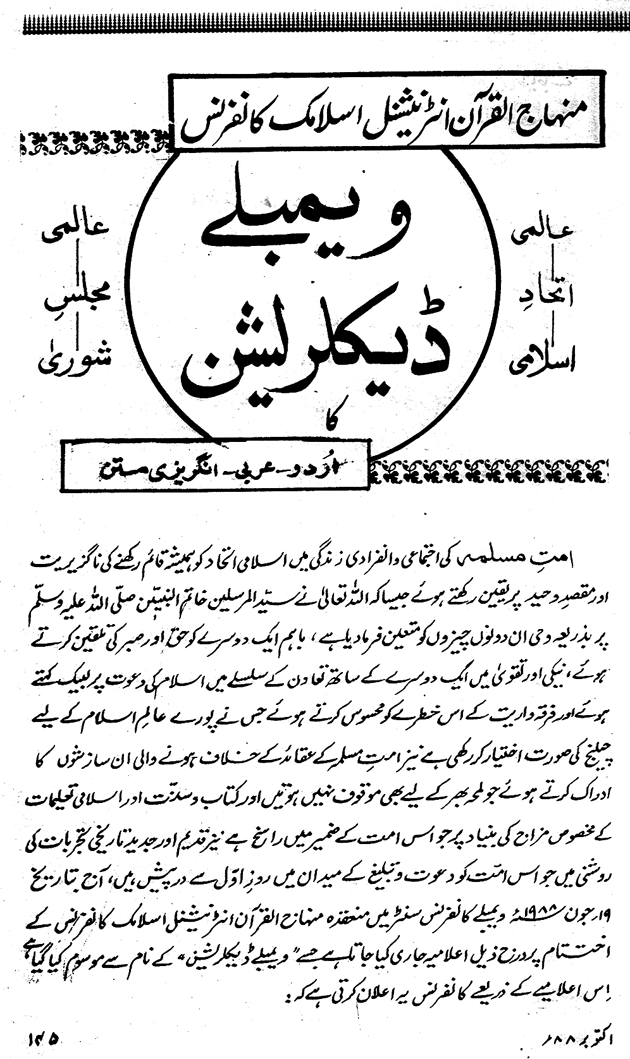 منہاج القرآن انٹرنیشنل اسلامک کانفرنس
ویمبلے
ڈیکلریشن
کا
عالمی
اتحادِ
اسلامی
عالمی
مجلسِ
شوریٰ
اُردو - عربی - انگریزی متن
امتِ مسلمہ کی اجتماعی و انفرادی زندگی میں اسلامی اتحاد کو ہمیشہ قائم رکھنے کی ناگزیریت
اور مقصدِ وحید پر یقین رکھتے ہوئے جیسا کہ اللہ تعالیٰ نے سیّد المرسلین خاتم النبیّین صلّی اللہ علیہ وسلّم
پر بذریعہ وحی ان دونوں چیزوں کو متعین فرما دیا ہے، باہم ایک دوسرے کو حق اور صبر کی تلقین کرتے
ہوئے، نیکی اور تقویٰ میں ایک دوسرے کے ساتھ تعاون کے سلسلے میں اسلام کی دعوت پر لبیک کہتے
ہوئے اور فرقہ واریت کے اس خطرے کو محسوس کرتے ہوئے جس نے پورے عالمِ اسلام کے لیے
چیلنج کی صورت اختیار کر رکھی ہے نیز امتِ مسلمہ کے عقائد کے خلاف ہونے والی ان سازشوں کا
ادراک کرتے ہوئے جو لمحہ بھر کے لیے بھی موقوف نہیں ہوتیں اور کتاب و سنّت اور اسلامی تعلیمات
کے مخصوص مزاج کی بنیاد پر جو اس امت کے ضمیر میں راسخ ہے نیز قدیم اور جدید تاریخی تجربات کی
روشنی میں جو اس امّت کو دعوت و تبلیغ کے میدان میں روزِ اوّل سے درپیش ہیں، آج بتاریخ
۱۹؍جون ۱۹۸۸ء ویمبلے کانفرنس سنٹر میں منعقدہ منہاج القرآن انٹرنیشنل اسلامک کانفرنس کے
اختتام پر درج ذیل اعلامیہ جاری کیا جاتا ہے جسے "ویمبلے ڈیکلریشن" کے نام سے موسوم کیا گیا ہے
اِس اعلامیے کے ذریعے کانفرنس یہ اعلان کرتی ہے کہ:
اکتوبر ۸۸ء
۱۴۵